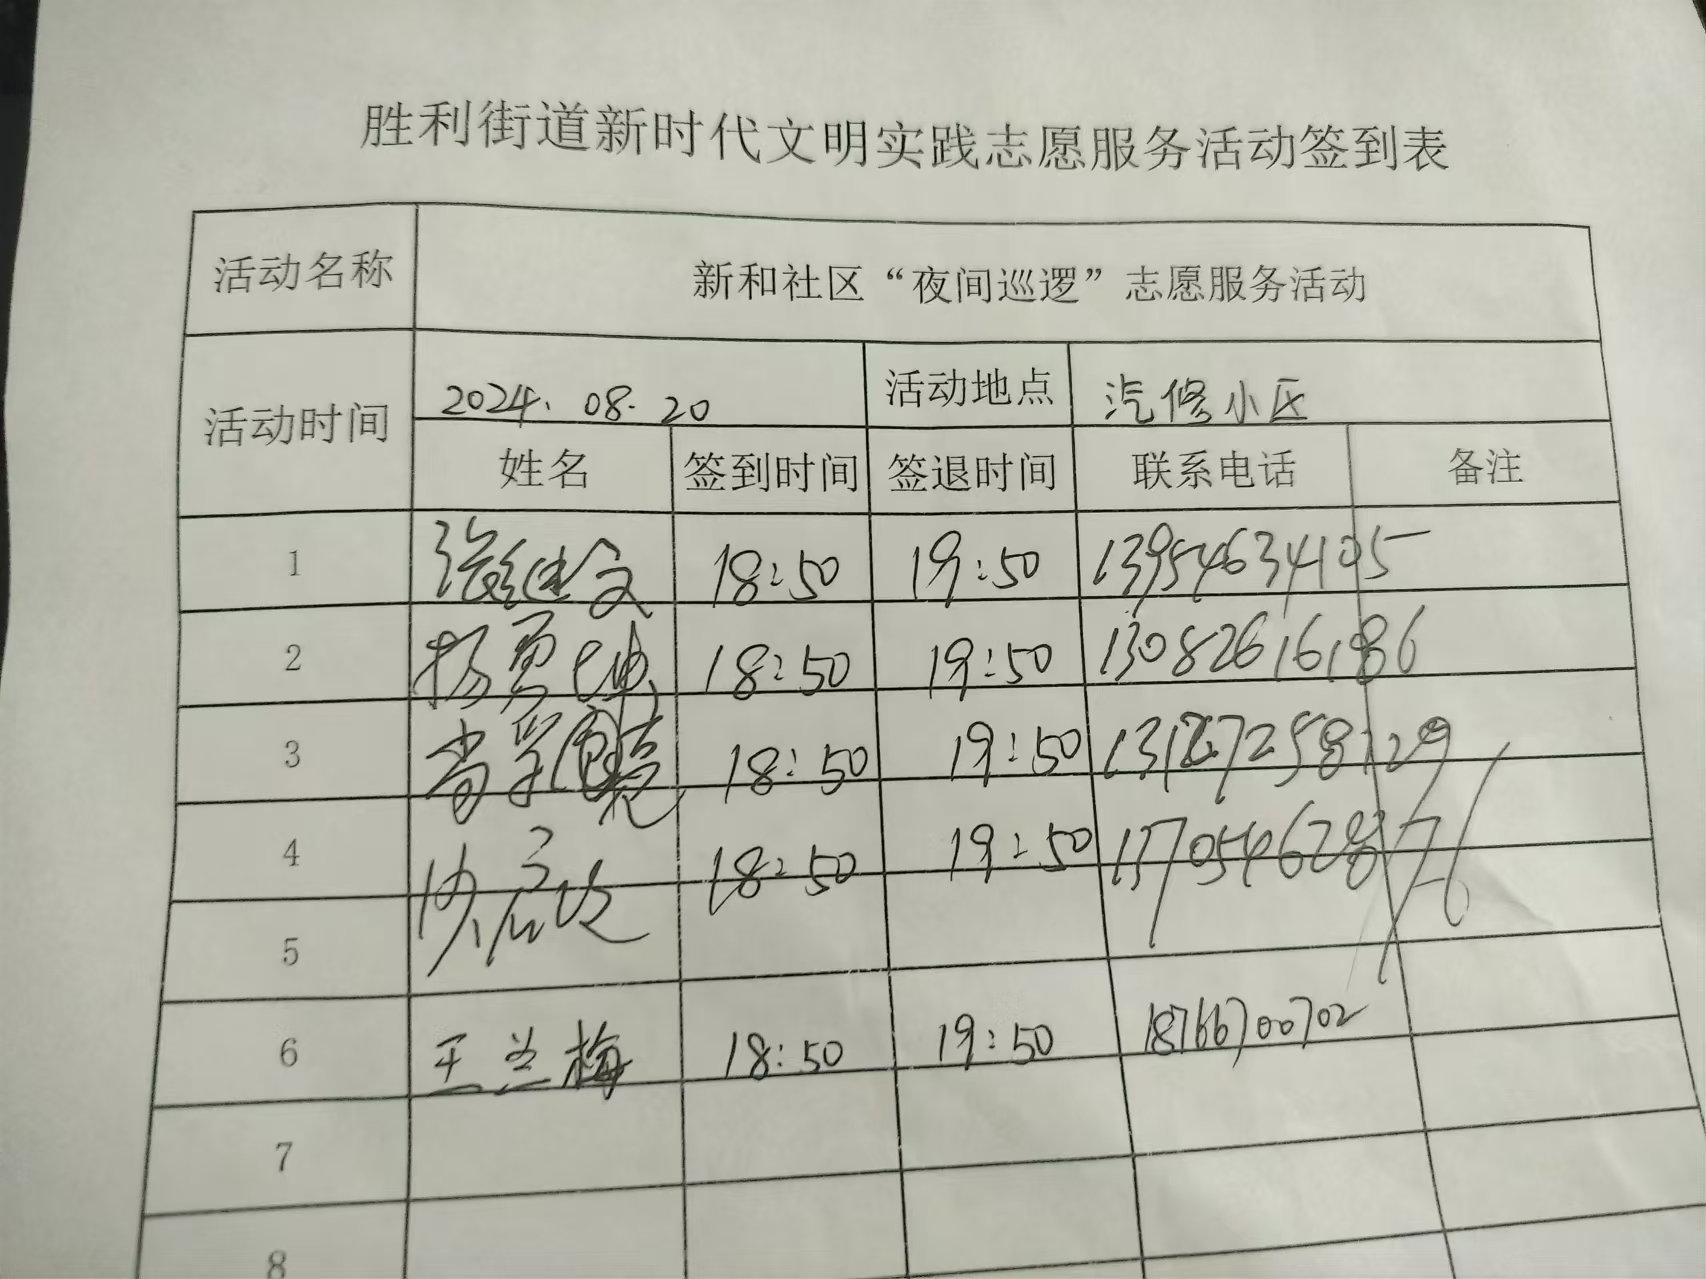 胜利街道新时代文明实践志愿服务活动签到表
活动名称 新和社区“夜间巡逻”志愿服务活动
活动时间 2024.08.20 活动地点 汽修小区
姓名 签到时间 签退时间 联系电话 备注
1 张继文 18:50 19:50 13954634105
2 杨勇 18:50 19:50 13082616186
3 18:50 19:50
4 18:50 19:50 13705462876
5
6 王兰梅 18:50 19:50 18766700702
7
8